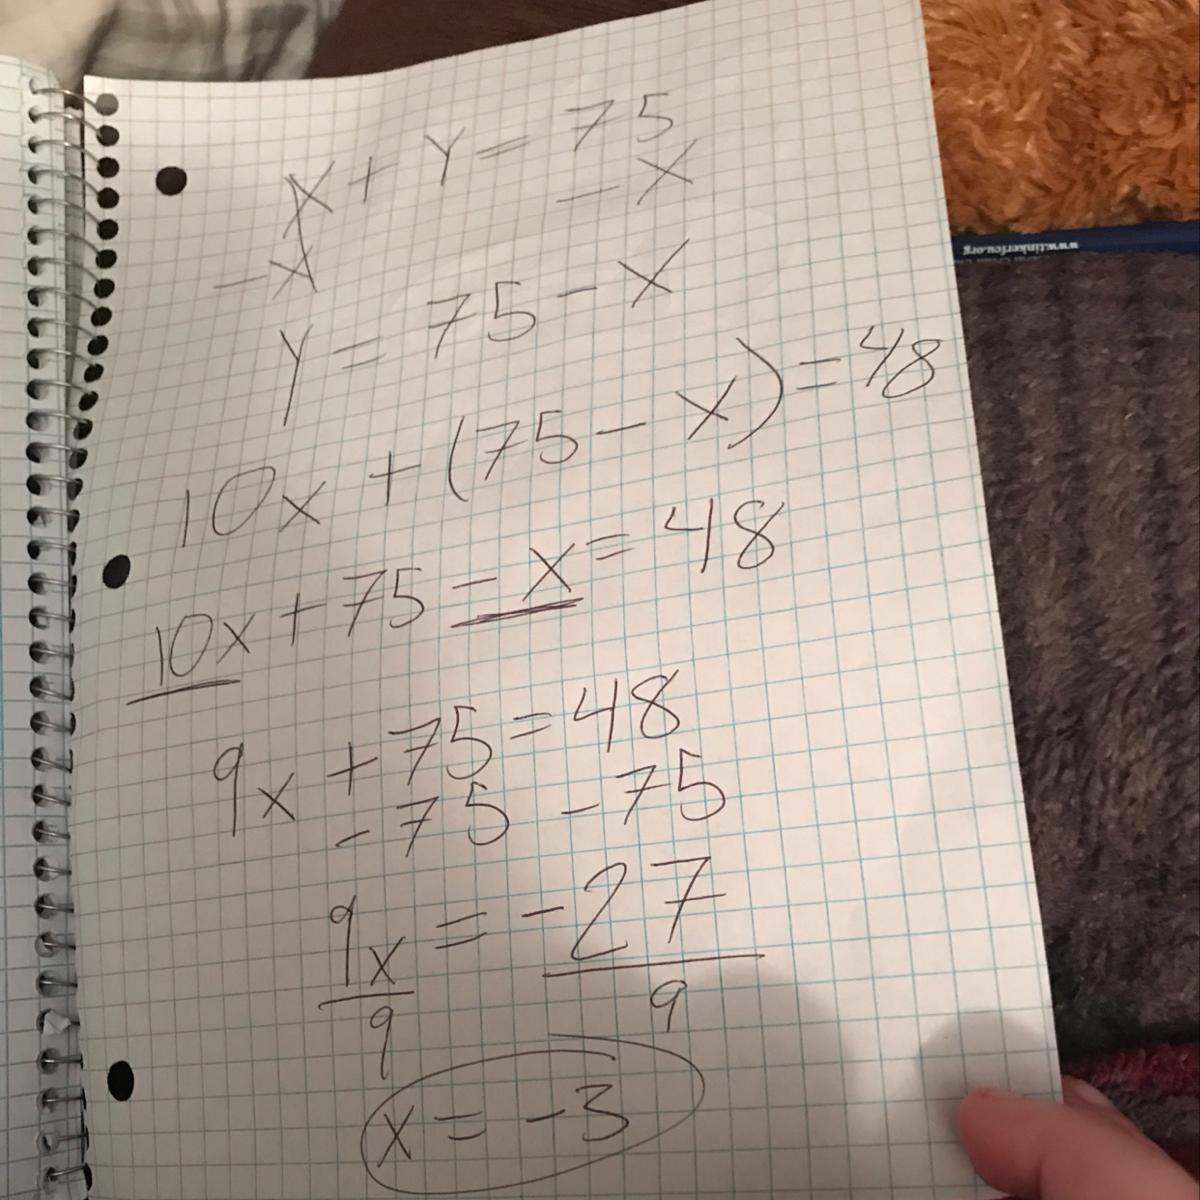 x + y = 75
-x - x
y = 75 - x
10x + (75 - x) = 48
10x + 75 - x = 48
9x + 75 = 48
- 75 - 75
9x = -27
9 9
x = -3
www.tinkerfcu.org